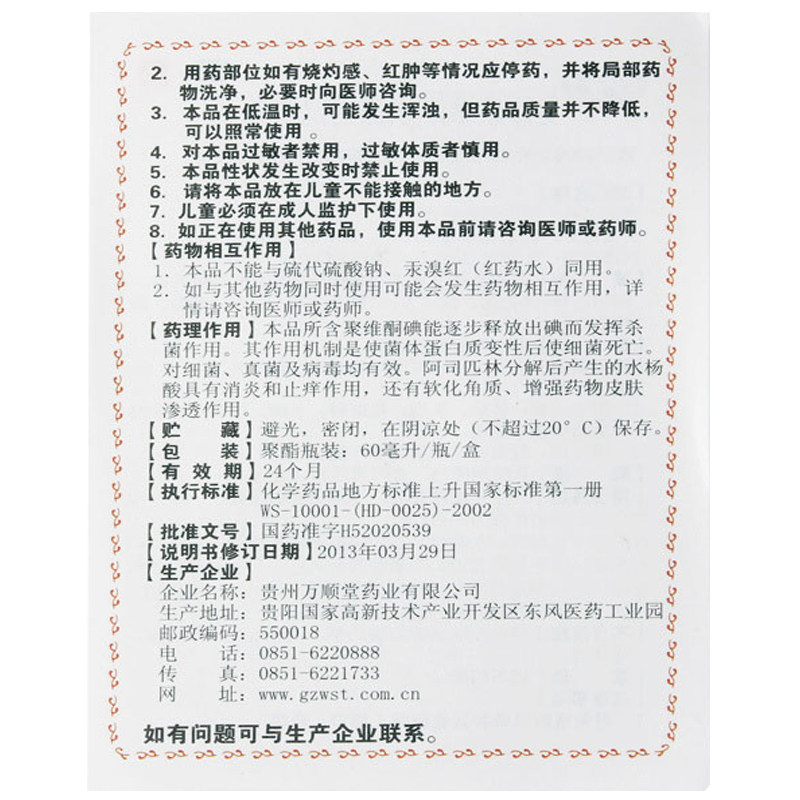 2. 用药部位如有烧灼感、红肿等情况应停药，并将局部药
物洗净，必要时向医师咨询。
3. 本品在低温时，可能发生浑浊，但药品质量并不降低，
可以照常使用。
4. 对本品过敏者禁用，过敏体质者慎用。
5. 本品性状发生改变时禁止使用。
6. 请将本品放在儿童不能接触的地方。
7. 儿童必须在成人监护下使用。
8. 如正在使用其他药品，使用本品前请咨询医师或药师。
【药物相互作用】
1. 本品不能与硫代硫酸钠、汞溴红（红药水）同用。
2. 如与其他药物同时使用可能会发生药物相互作用，详
情请咨询医师或药师。
【药理作用】本品所含聚维酮碘能逐步释放出碘而发挥杀
菌作用。其作用机制是使菌体蛋白质变性后使细菌死亡。
对细菌、真菌及病毒均有效。阿司匹林分解后产生的水杨
酸具有消炎和止痒作用，还有软化角质、增强药物皮肤
渗透作用。
【贮 藏】避光，密闭，在阴凉处（不超过20°C）保存。
【包 装】聚酯瓶装：60毫升/瓶/盒
【有 效 期】24个月
【执行标准】化学药品地方标准上升国家标准第一册
WS-10001-(HD-0025)-2002
【批准文号】国药准字H52020539
【说明书修订日期】2013年03月29日
【生产企业】
企业名称：贵州万顺堂药业有限公司
生产地址：贵阳国家高新技术产业开发区东风医药工业园
邮政编码：550018
电 话：0851-6220888
传 真：0851-6221733
网 址：www.gzwst.com.cn
如有问题可与生产企业联系。